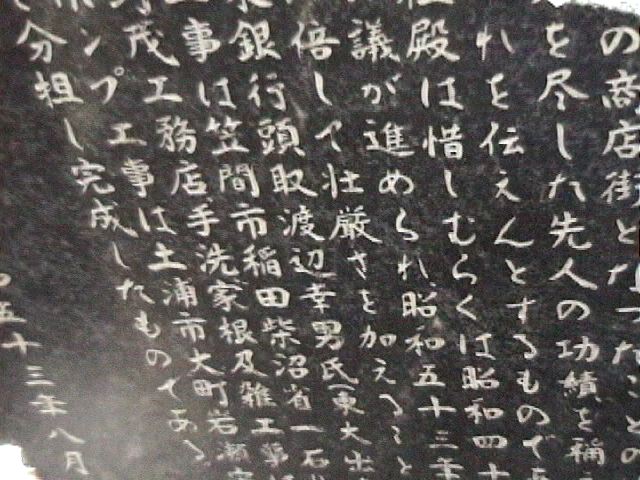 の商店街となったことの
を尽した先人の功績を稱
れを伝えんとするものであ
殿は惜しむらくは昭和四十
議が進められ昭和五十三年
倍して壮厳さを加えること
銀行頭取渡辺幸男氏(東大出
事は笠間市稲田柴沼省一石
茂工務店手洗家根及雑工事
ンプ工事は土浦市大町岩瀬
分担し完成したものである
五十三年八月